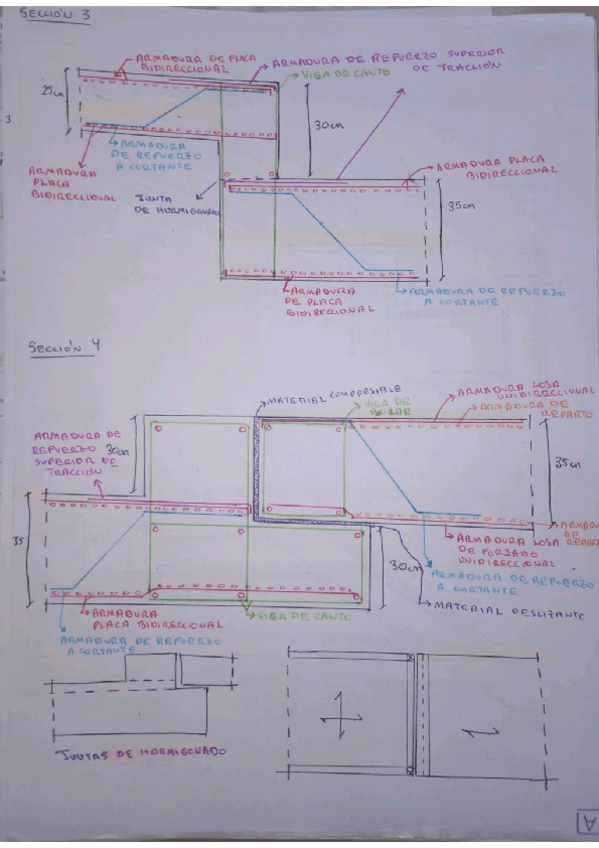 SECCIÓN 3
ARMADURA DE PLACA
BIDIRECCIONAL
ARMADURA DE REFUERZO SUPERIOR
DE TRACCIÓN
VIGA DE CANTO
25cm
30cm
3
ARMADURA
DE REFUERZO
A CORTANTE
ARMADURA PLACA
BIDIRECCIONAL
ARMADURA
PLACA
BIDIRECCIONAL
JUNTA
DE HORMIGONADO
35cm
ARMADURA
DE PLACA
BIDIRECCIONAL
ARMADURA DE REFUERZO
A CORTANTE
SECCIÓN 4
MATERIAL COMPRESIBLE
VIGA DE
BORDE
ARMADURA LOSA
UNIDIRECCIONAL
ARMADURA DE
REPARTO
ARMADURA DE
REFUERZO
SUPERIOR DE
TRACCIÓN
30cm
35cm
35
30cm
ARMADURA LOSA
DE FORJADO
UNIDIRECCIONAL
ARMADURA DE REFUERZO
A CORTANTE
MATERIAL DESLIZANTE
ARMADURA
PLACA BIDIRECCIONAL
VIGA DE CANTO
ARMADURA DE REFUERZO
A CORTANTE
JUNTAS DE HORMIGONADO
A